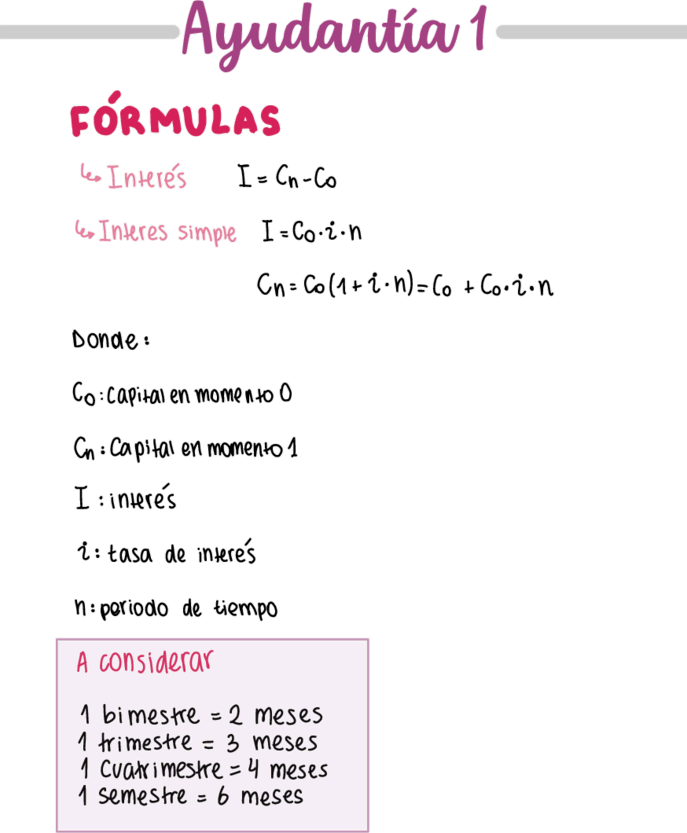 Ayudantía 1
FÓRMULAS
↳ Interés I = Cn - C0
↳ Interes simple I = C0 · i · n
Cn = C0 (1 + i · n) = C0 + C0 · i · n
Donde :
C0 : Capital en momento 0
Cn : Capital en momento 1
I : interés
i : tasa de interés
n : periodo de tiempo
A considerar
1 bimestre = 2 meses
1 trimestre = 3 meses
1 cuatrimestre = 4 meses
1 semestre = 6 meses